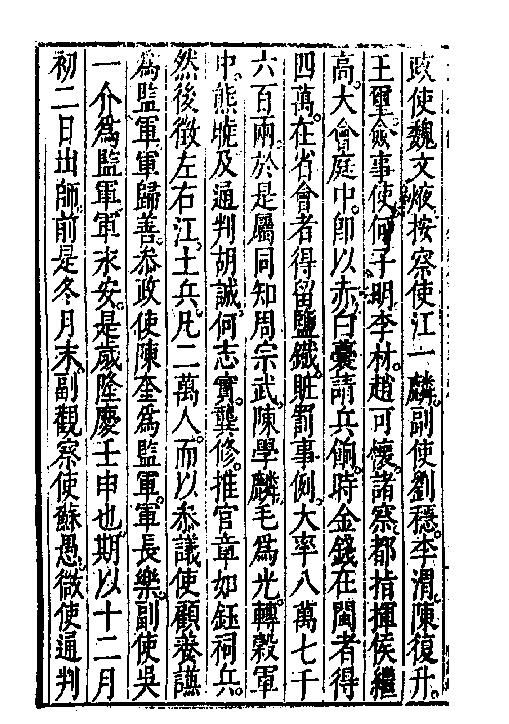 政使魏文焲按察使江一麟副使劉穩李渭陳復升
王璽僉事使何子明李材趙可懷諸察都指揮侯繼
高大會庭中卽以赤白囊請兵餉時金錢在閩者得
四萬在省會者得留鹽鐵贓罰事例大率八萬七千
六百兩於是屬同知周宗武陳學麟毛為光轉穀軍
中熊㬇及通判胡誠何志實龔修推官章如鈺祠兵
然後徵左右江土兵凡二萬人而以叅議使顧養謙
為監軍軍歸善叅政使陳奎為監軍軍長樂副使吳
一介為監軍軍永安是歲隆慶壬申也期以十二月
初二日出師前是冬月末副觀察使蘇愚微使通判